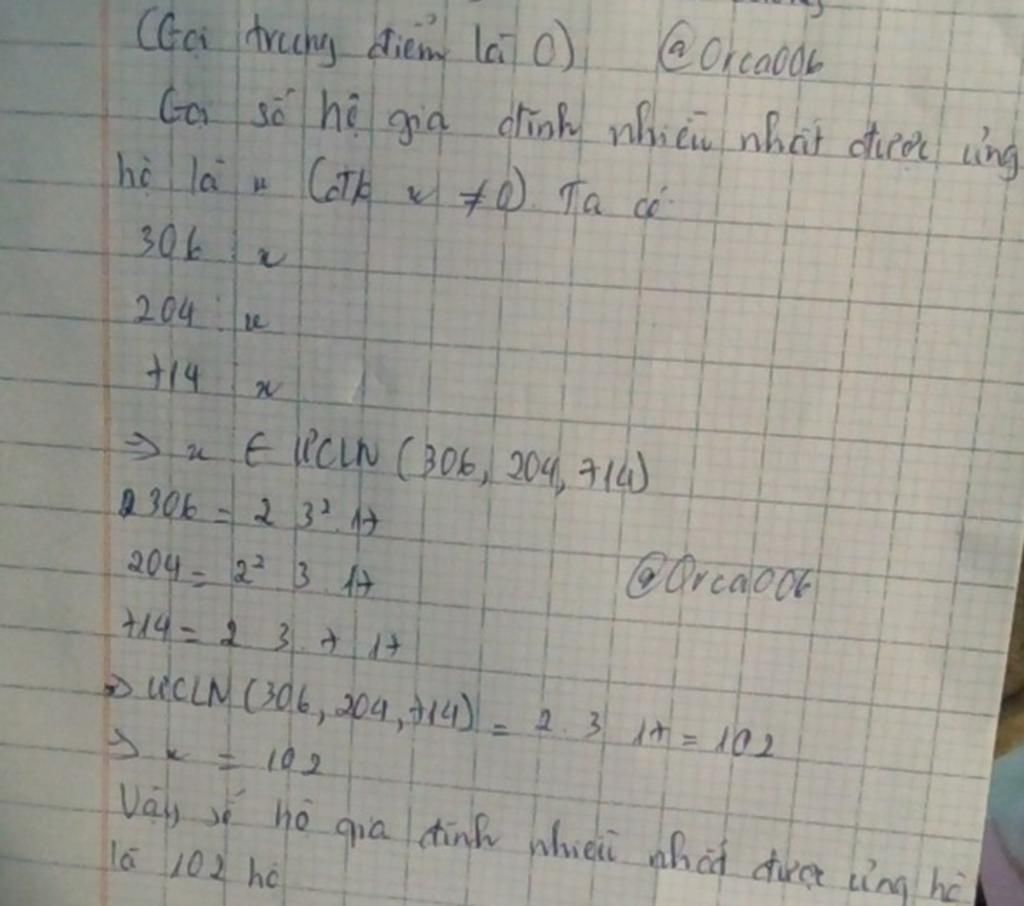 (Gọi trung điểm là O) @Orca006
Gọi số hộ gia đình nhiều nhất được ủng
hộ là x (đk x ≠ 0). Ta có
306 ⋮ x
204 ⋮ x
714 ⋮ x
⇒ x ∈ ƯCLN (306, 204, 714)
306 = 2 . 3² . 17
204 = 2² . 3 . 17 @Orca006
714 = 2 . 3 . 7 . 17
⇒ ƯCLN (306, 204, 714) = 2 . 3 . 17 = 102
⇒ x = 102
Vậy số hộ gia đình nhiều nhất được ủng hộ
là 102 hộ